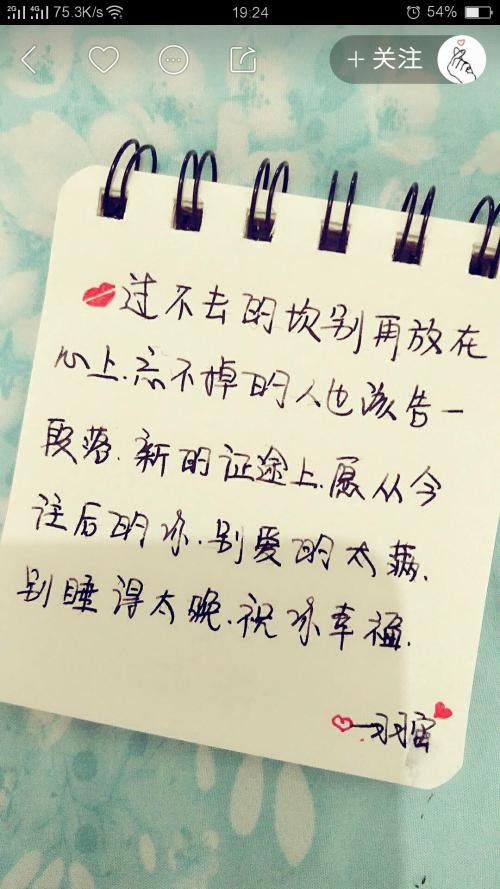 2G 4G 75.3K/s 19:24 54%
+ 关注
过不去的坎别再放在
心上.忘不掉的人也该告一
段落.新的证途上.愿从今
往后的你.别爱的太满.
别睡得太晚.祝你幸福.